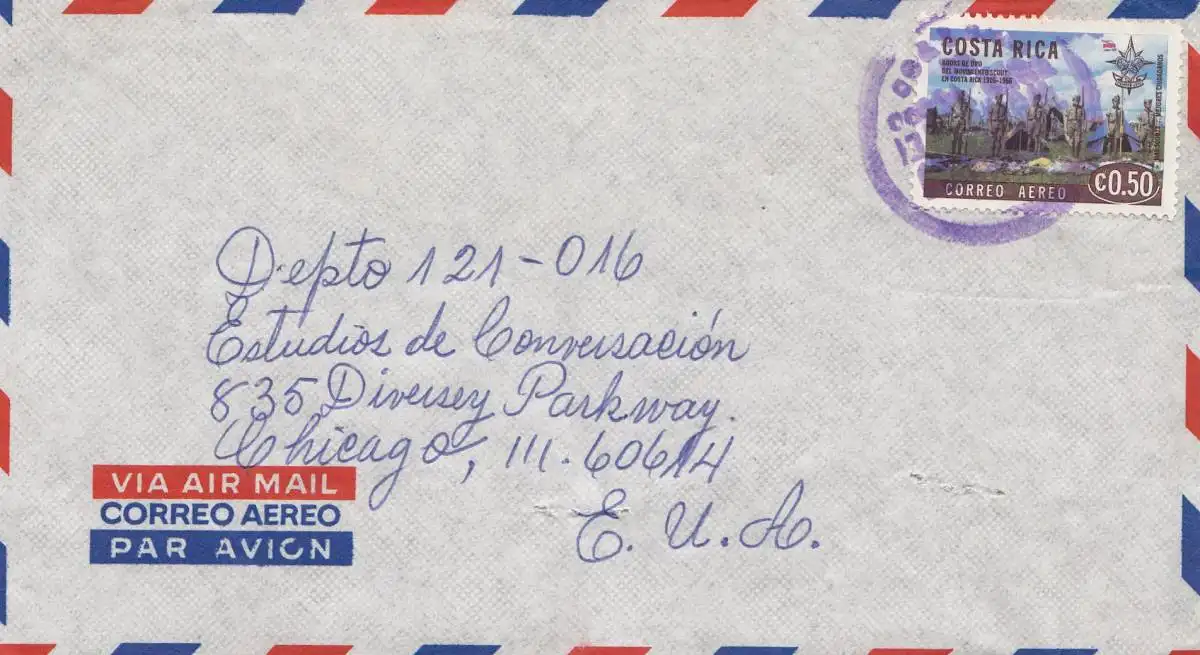 COSTA RICA
BODAS DE ORO
DEL MOVIMIENTO SCOUT
EN COSTA RICA 1916-1966
CORREO AEREO
₡0.50
Depto 121-016
Estudios de Conversación
835 Diversey Parkway.
Chicago, Ill. 60614
E. U. A.
VIA AIR MAIL
CORREO AEREO
PAR AVION